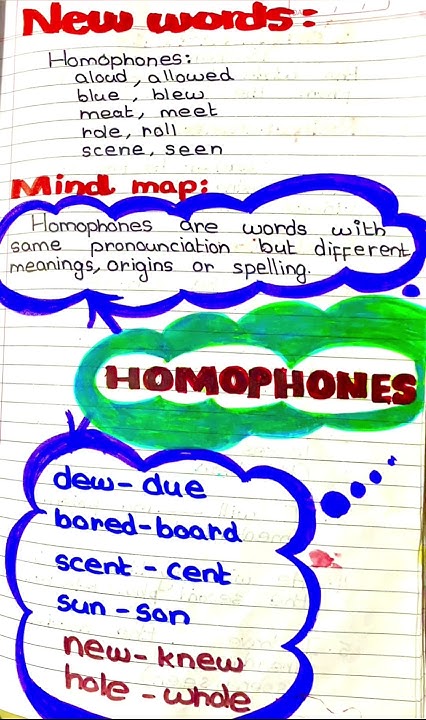 New words:
Homophones:
aloud, allowed
blue, blew
meat, meet
role, roll
scene, seen
Mind map:
Homophones are words with
same pronounciation but different
meanings, origins or spelling.
HOMOPHONES
dew - due
bored - board
scent - cent
sun - son
new - knew
hole - whole